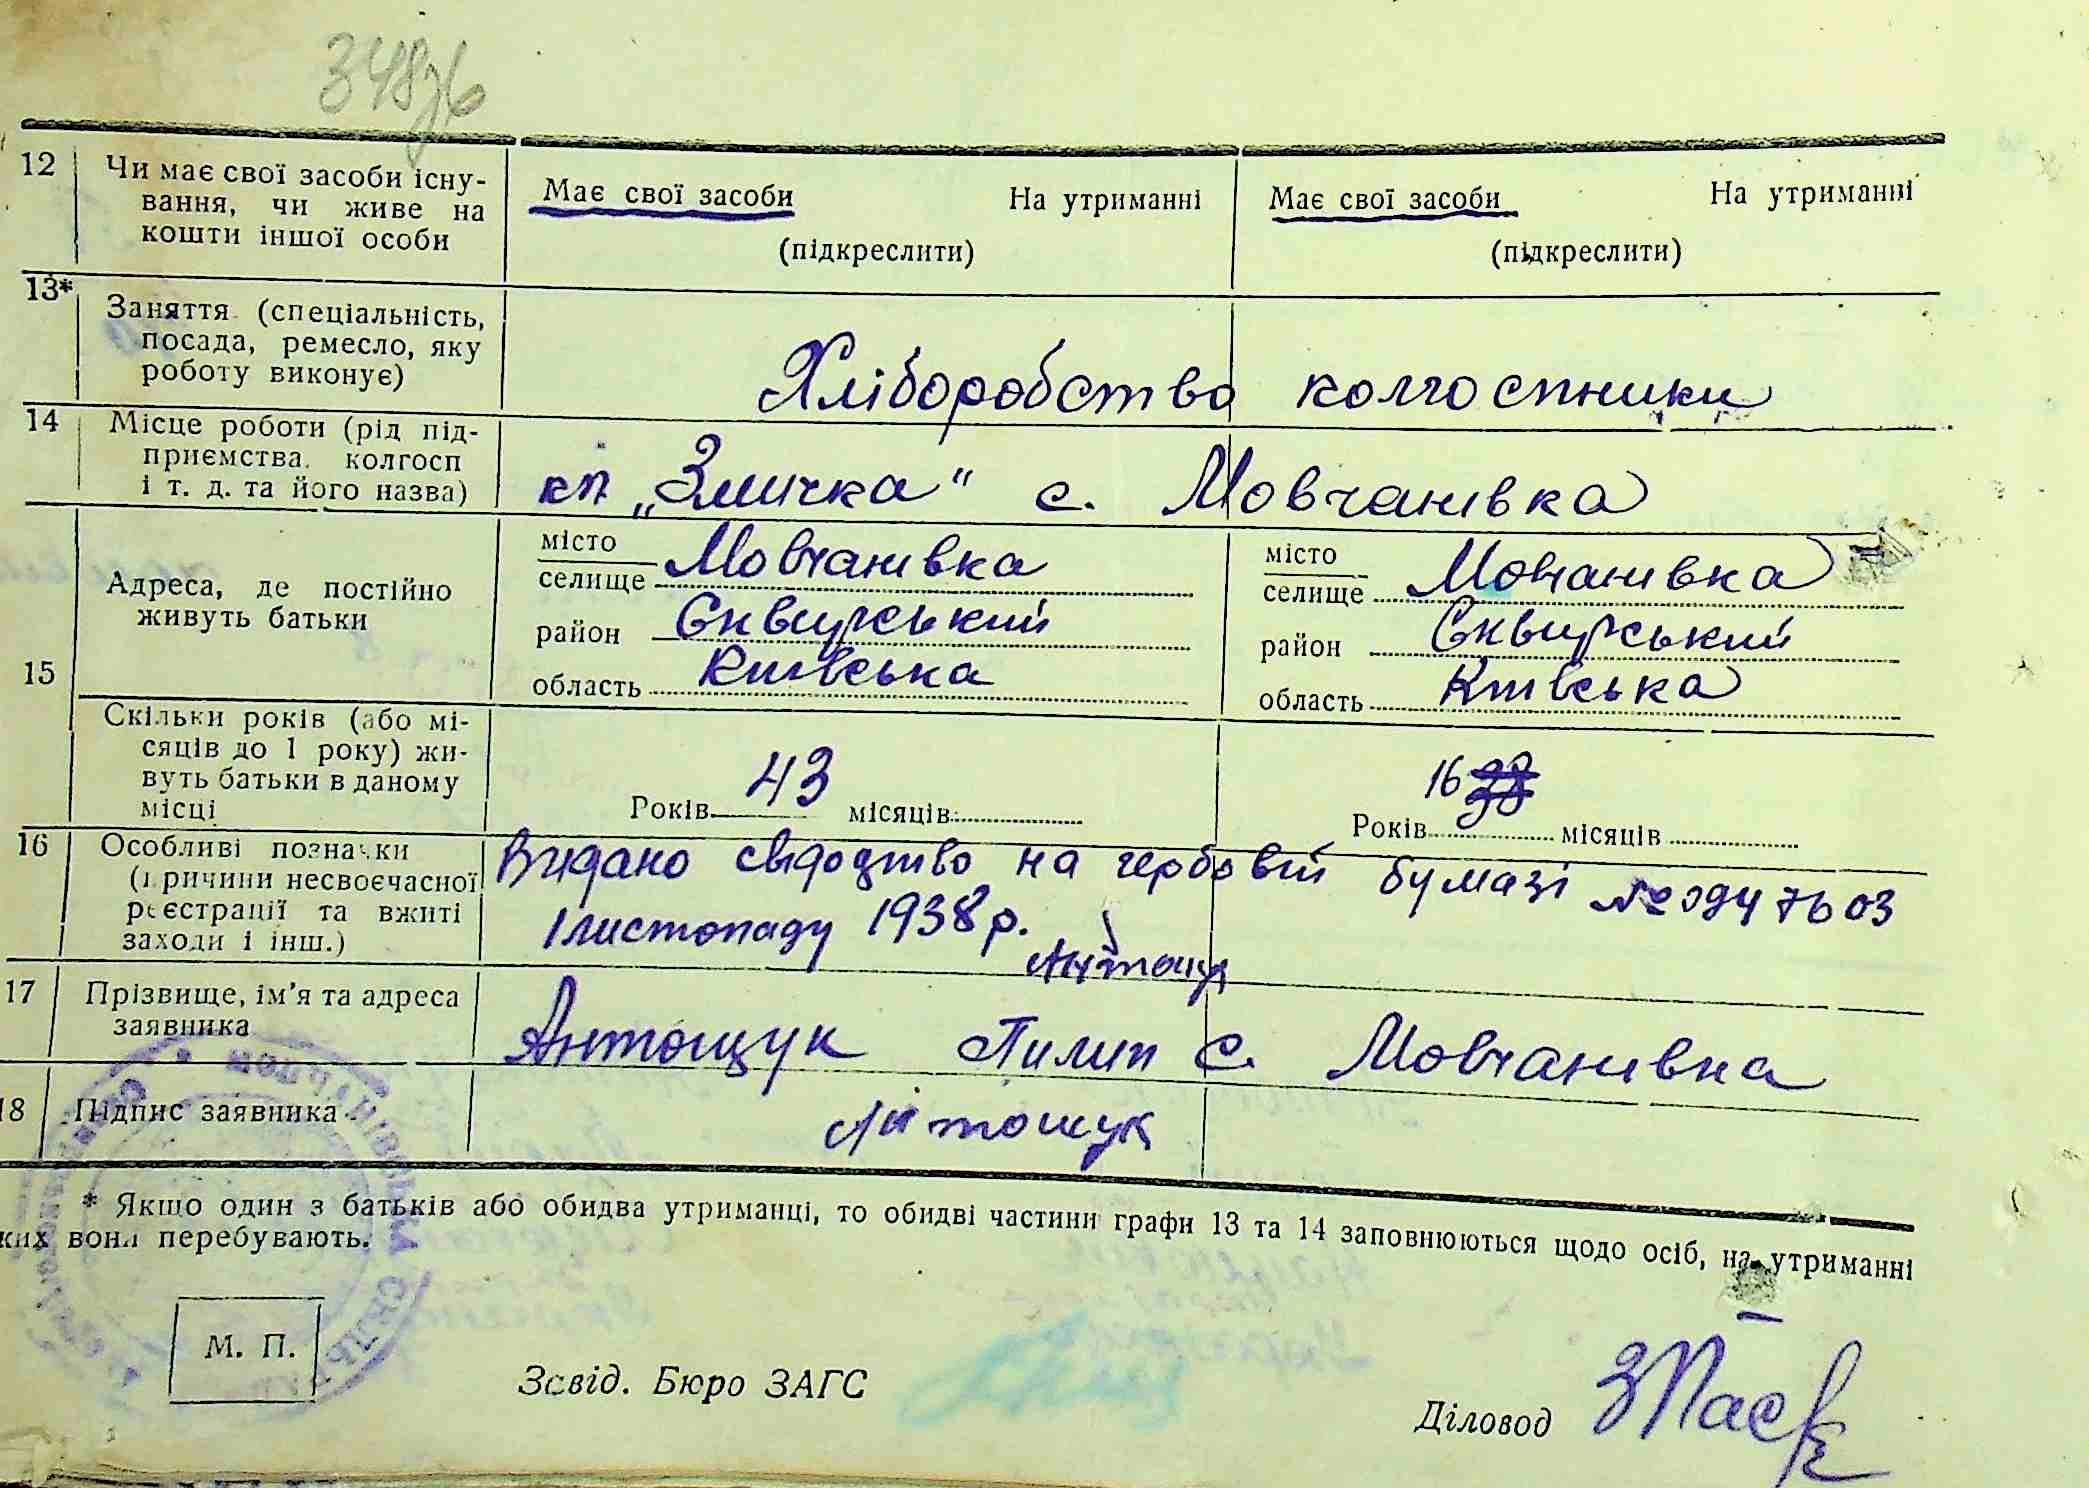 348зв
12 Чи має свої засоби існу-
вання, чи живе на
кошти іншої особи
Має свої засоби На утриманні
(підкреслити)
Має свої засоби На утриманні
(підкреслити)
13* Заняття (спеціальність,
посада, ремесло, яку
роботу виконує)
Хліборобство колгоспники
14 Місце роботи (рід під-
приємства, колгосп
і т. д. та його назва)
кп „Змичка" с. Мовчанівка
15
Адреса, де постійно
живуть батьки
місто
селище Мовчанівка
район Сквирський
область Київська
місто
селище Мовчанівка
район Сквирський
область Київська
Скільки років (або мі-
сяців до 1 року) жи-
вуть батьки в даному
місці
Років 43 місяців
16
Років місяців
16 Особливі позначки
(причини несвоєчасної
реєстрації та вжиті
заходи і інш.)
Видано свідоцтво на гербовій бумазі №
1 листопаду 1938 р.
Антощук
17 Прізвище, ім'я та адреса
заявника
Антощук Пилип с. Мовчанівка
18 Підпис заявника
Антощук
* Якщо один з батьків або обидва утриманці, то обидві частини графи 13 та 14 заповнюються щодо осіб, на утриманні
ких вони перебувають.
М. П.
Завід. Бюро ЗАГС
Діловод